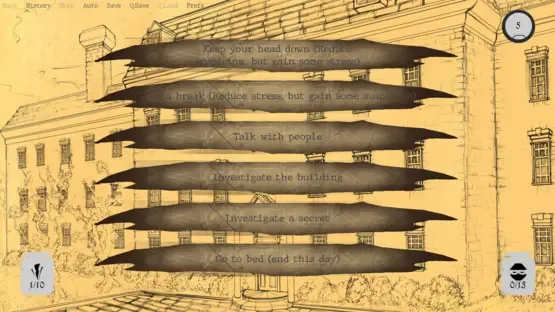 Back History Skip Auto Save Q.Save Q.Load Prefs
5
Keep your head down (Reduce
suspicion, but gain some stress)
a break (Reduce stress, but gain some susp
Talk with people
Investigate the building
Investigate a secret
Go to bed (end this day)
1/10
0/13